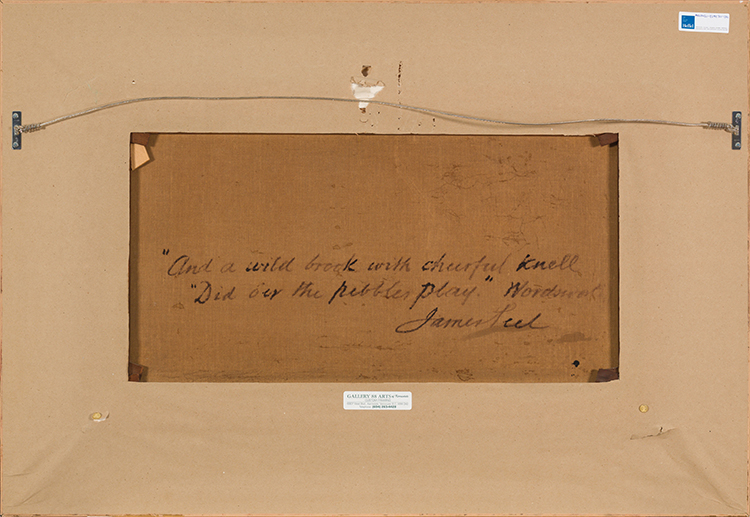 "And a wild brook with cheerful knell
"Did o'er the pebbles play." Wordswort
James Peel
GALLERY 88 ARTS